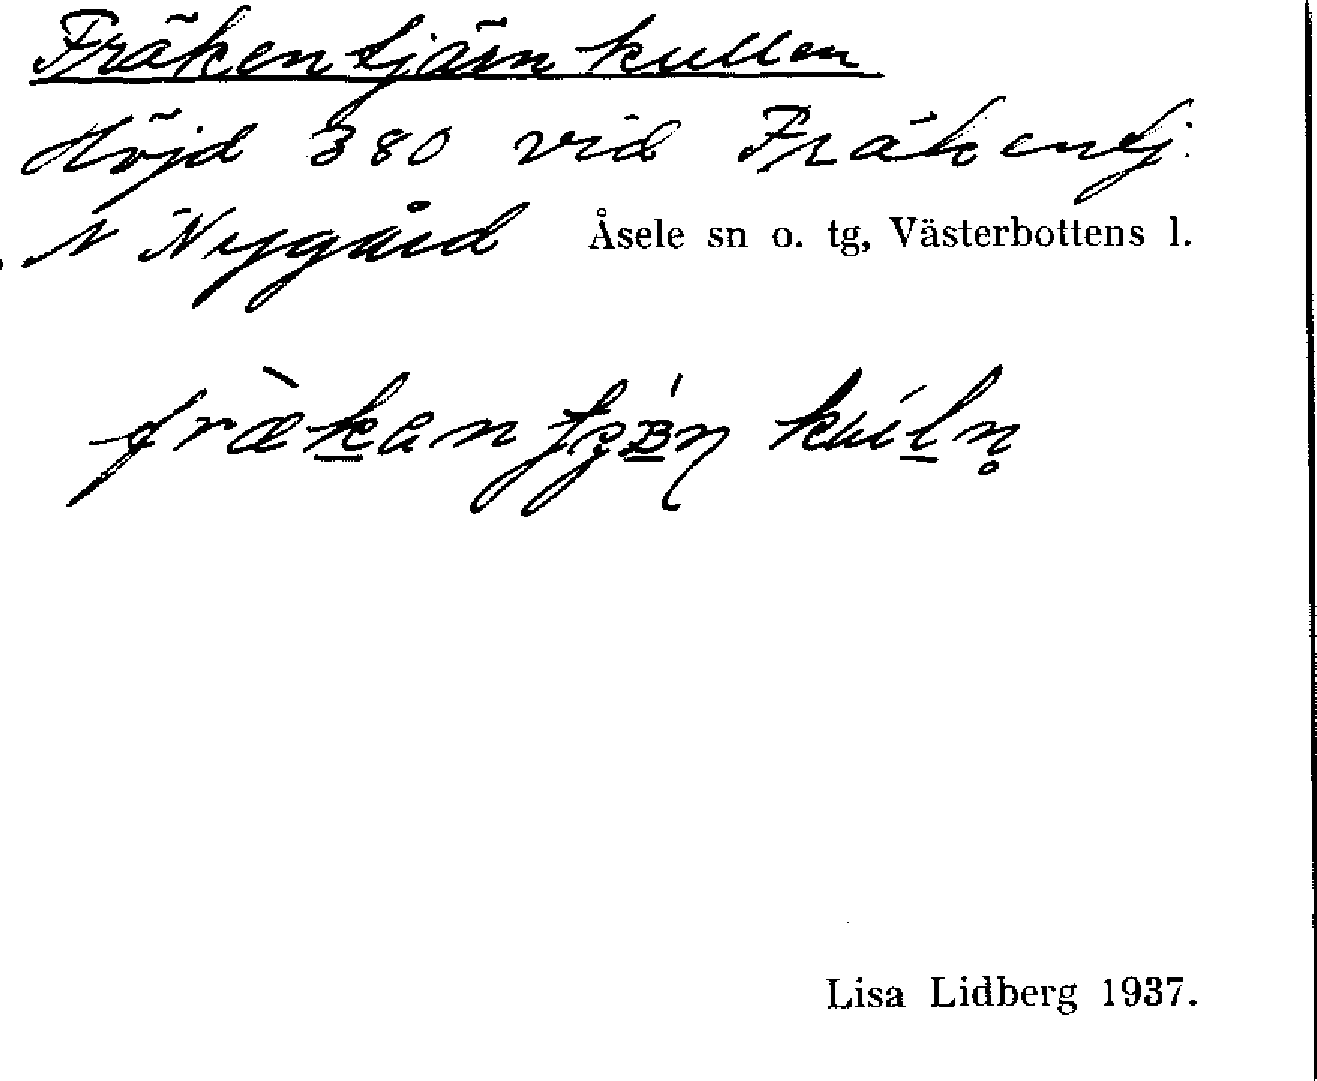 Fräkentjärnkullen
Höjd 380 vid Fräkentj.
N Nygård Åsele sn o. tg, Västerbottens l.
Lisa Lidberg 1937.